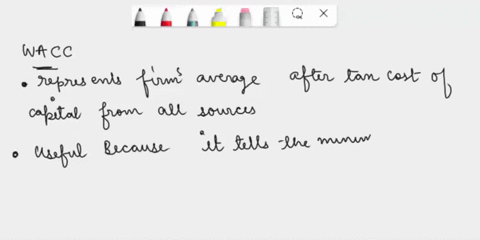 WACC
• represents firm's average after tan cost of
capital from all sources
• Useful Because it tells the minim